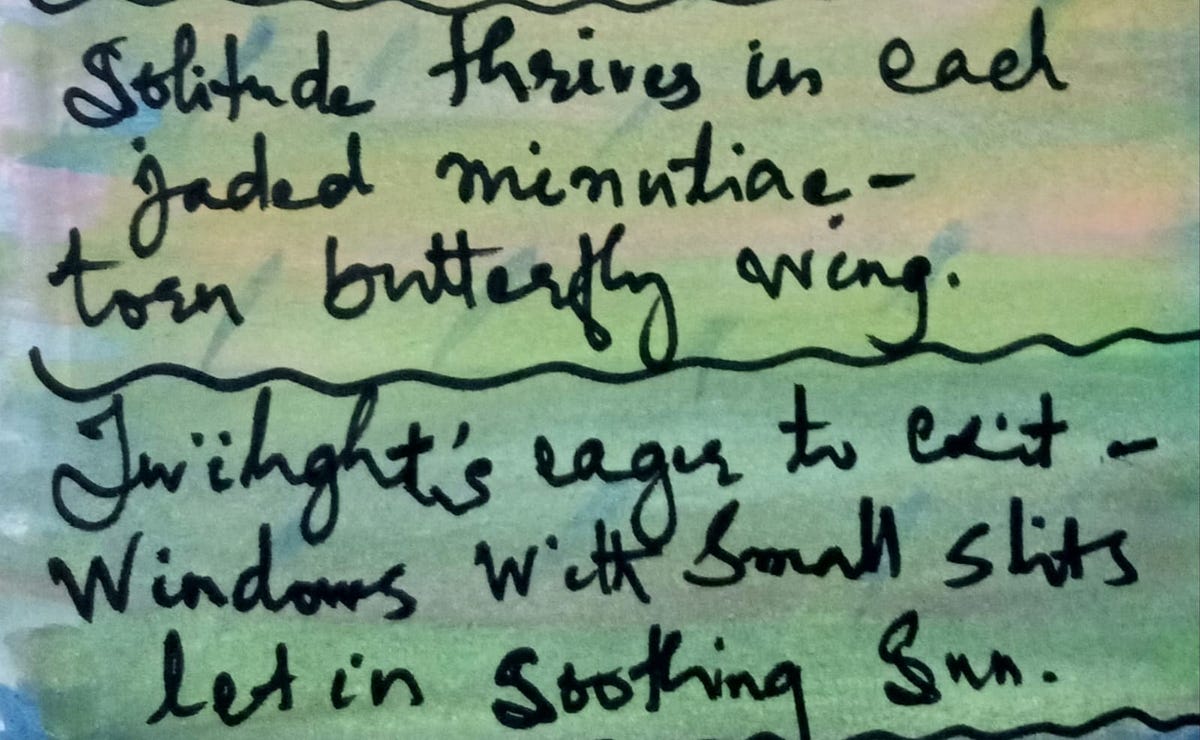 Solitude thrives in each
jaded minutiae -
torn butterfly wing.
Twilight's eager to exit -
Windows with small slits
let in soothing Sun.